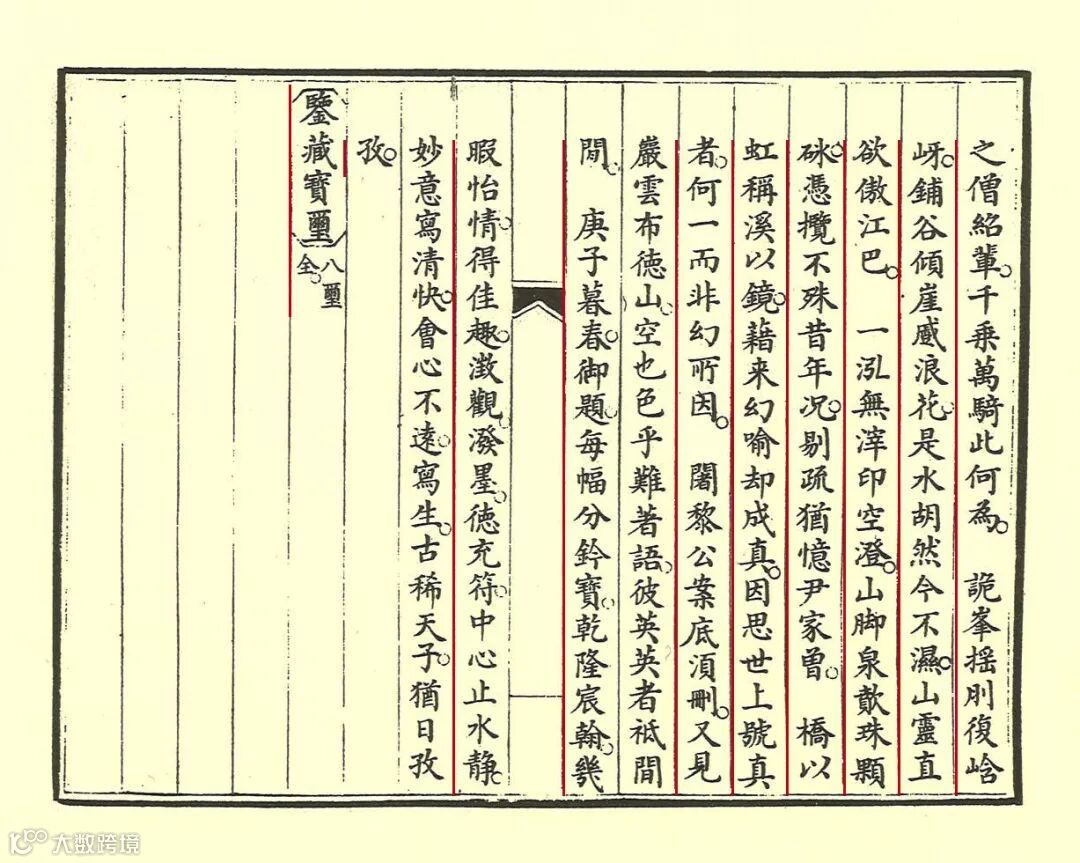 之僧紹輩千乗萬騎此何為　詭峯揺刖復峆
岈鋪谷傾崖慼浪花是水胡然今不濕山靈直
欲傲江巴　一泓無滓印空澄山脚泉歕珠顆
砯憑攬不殊昔年况剔疏猶憶尹家曽　橋以
虹稱溪以鏡藉来幻喻却成真因思世上號真
者何一而非幻所因　闍黎公案底湏刪又見
巖雲布徳山空也色乎難著語彼英英者祗閒
閒　庚子暮春御題每幅分鈐寶乾隆宸翰幾
暇怡情得佳趣澂觀潑墨徳充符中心止水静
妙意寫清快會心不遠寫生古稀天子猶日孜
孜
鑒藏寶璽
八璽
全
大数跨境